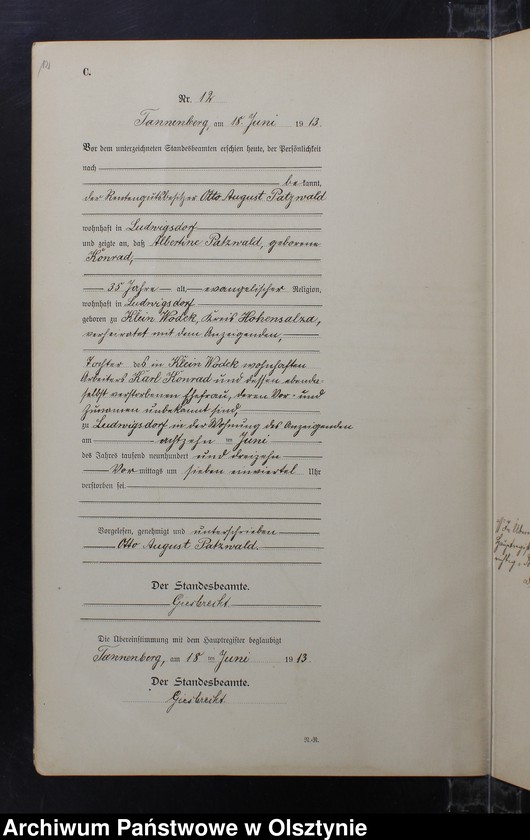 C.
Nr. 12
Tannenberg, am 18. Juni 1913.
Vor dem unterzeichneten Standesbeamten erschien heute, der Persönlichkeit
nach
be kannt,
der Rentengutsbesitzer Otto August Patzwald
wohnhaft in Ludwigsdorf
und zeigte an, daß Albertine Patzwald, geborene
Konrad,
35 Jahre alt, evangelischer Religion,
wohnhaft in Ludwigsdorf
geboren zu Klein Wodek, Kreis Hohensalza,
verheiratet mit dem Anzeigenden,
Tochter des in Klein Wodek wohnhaften
Arbeiters Karl Konrad und dessen ebenda-
selbst verstorbenen Ehefrau, deren Vor- und
Zunamen unbekannt sind
zu Ludwigsdorf in der Wohnung des Anzeigenden
am achtzehn ten Juni
des Jahres tausend neunhundert und dreizehn
Vor mittags um sieben einviertel Uhr
verstorben sei.
Vorgelesen, genehmigt und unterschrieben
Otto August Patzwald.
Der Standesbeamte.
Giesbrecht.
Die Übereinstimmung mit dem Hauptregister beglaubigt
Tannenberg, am 18 ten Juni 1913.
Der Standesbeamte.
Giesbrecht.
Archiwum Państwowe w Olsztynie